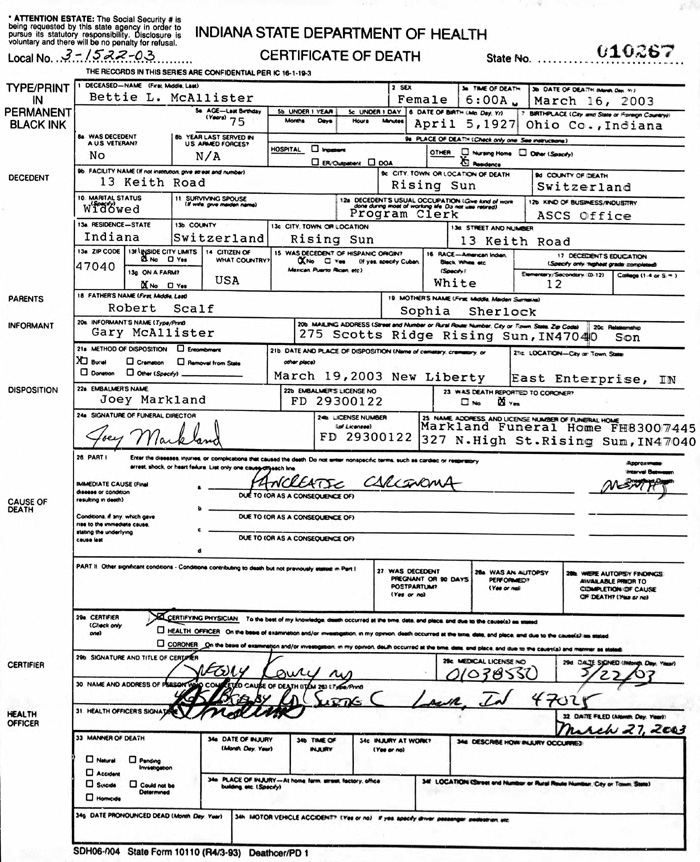 * ATTENTION ESTATE: The Social Security # is
being requested by this state agency in order to
pursue its statutory responsibility. Disclosure is
voluntary and there will be no penalty for refusal.
INDIANA STATE DEPARTMENT OF HEALTH
CERTIFICATE OF DEATH
Local No. 3-1522-03
State No. 010267
THE RECORDS IN THIS SERIES ARE CONFIDENTIAL PER IC 16-1-19-3
TYPE/PRINT
IN
PERMANENT
BLACK INK
1 DECEASED—NAME (First, Middle, Last)
Bettie L. McAllister
2 SEX
Female
3a TIME OF DEATH
6:00A M
3b DATE OF DEATH (Month, Day, Yr.)
March 16, 2003
5a AGE—Last Birthday
(Years) 75
5b UNDER 1 YEAR
Months Days
5c UNDER 1 DAY
Hours Minutes
6 DATE OF BIRTH (Mo. Day, Yr)
April 5,1927
7 BIRTHPLACE (City and State or Foreign Country)
Ohio Co.,Indiana
8a WAS DECEDENT
A US VETERAN?
No
8b YEAR LAST SERVED IN
US ARMED FORCES?
N/A
9a PLACE OF DEATH (Check only one. See instructions)
HOSPITAL Inpatient
ER/Outpatient DOA
OTHER Nursing Home Other (Specify)
X Residence
DECEDENT
9b FACILITY NAME (If not institution, give street and number)
13 Keith Road
9c CITY, TOWN OR LOCATION OF DEATH
Rising Sun
9d COUNTY OF DEATH
Switzerland
10 MARITAL STATUS
(Specify)
Widowed
11 SURVIVING SPOUSE
(If wife, give maiden name)
12a DECEDENT'S USUAL OCCUPATION (Give kind of work
done during most of working life. Do not use retired)
Program Clerk
12b KIND OF BUSINESS/INDUSTRY
ASCS Office
13a RESIDENCE—STATE
Indiana
13b COUNTY
Switzerland
13c CITY, TOWN OR LOCATION
Rising Sun
13d STREET AND NUMBER
13 Keith Road
13e ZIP CODE
47040
13f INSIDE CITY LIMITS
X No Yes
13g ON A FARM?
X No Yes
14 CITIZEN OF
WHAT COUNTRY?
USA
15 WAS DECEDENT OF HISPANIC ORIGIN?
X No Yes (If yes, specify Cuban,
Mexican, Puerto Rican, etc.)
16 RACE—American Indian,
Black, White, etc
(Specify)
White
17 DECEDENT'S EDUCATION
(Specify only highest grade completed)
Elementary/Secondary (0-12) College (1-4 or 5+)
12
PARENTS
18 FATHER'S NAME (First, Middle, Last)
Robert Scalf
19 MOTHER'S NAME (First, Middle, Maiden Surname)
Sophia Sherlock
INFORMANT
20a INFORMANT'S NAME (Type/Print)
Gary McAllister
20b MAILING ADDRESS (Street and Number or Rural Route Number, City or Town, State, Zip Code)
275 Scotts Ridge Rising Sun,IN47040
20c Relationship
Son
21a METHOD OF DISPOSITION Entombment
X Burial Cremation Removal from State
Donation Other (Specify)
21b DATE AND PLACE OF DISPOSITION (Name of cemetery, crematory, or
other place)
March 19,2003 New Liberty
21c LOCATION—City or Town, State
East Enterprise, IN
DISPOSITION
22a EMBALMER'S NAME
Joey Markland
22b EMBALMER'S LICENSE NO
FD 29300122
23 WAS DEATH REPORTED TO CORONER?
No X Yes
24a SIGNATURE OF FUNERAL DIRECTOR
Joey Markland
24b LICENSE NUMBER
(of Licensee)
FD 29300122
25 NAME, ADDRESS, AND LICENSE NUMBER OF FUNERAL HOME
Markland Funeral Home FH83007445
327 N.High St.Rising Sun,IN47040
CAUSE OF
DEATH
26 PART I Enter the diseases, injuries, or complications that caused the death. Do not enter nonspecific terms, such as cardiac or respiratory
arrest, shock, or heart failure. List only one cause on each line
Approximate
Interval Between
IMMEDIATE CAUSE (Final
disease or condition
resulting in death)
a PANCREATIC CARCINOMA
MONTHS
DUE TO (OR AS A CONSEQUENCE OF)
Conditions, if any, which gave
rise to the immediate cause,
stating the underlying
cause last
b
DUE TO (OR AS A CONSEQUENCE OF)
c
DUE TO (OR AS A CONSEQUENCE OF)
d
PART II Other significant conditions - Conditions contributing to death but not previously stated in Part I
27 WAS DECEDENT
PREGNANT OR 90 DAYS
POSTPARTUM?
(Yes or no)
28a WAS AN AUTOPSY
PERFORMED?
(Yes or no)
28b WERE AUTOPSY FINDINGS
AVAILABLE PRIOR TO
COMPLETION OF CAUSE
OF DEATH? (Yes or no)
CERTIFIER
29a CERTIFIER
(Check only
one)
CERTIFYING PHYSICIAN To the best of my knowledge, death occurred at the time, date, and place, and due to the cause(s) as stated
HEALTH OFFICER On the basis of examination and/or investigation, in my opinion, death occurred at the time, date, and place, and due to the cause(s) as stated
CORONER On the basis of examination and/or investigation, in my opinion, death occurred at the time, date, and place, and due to the cause(s) and manner as stated
29b SIGNATURE AND TITLE OF CERTIFIER
29c MEDICAL LICENSE NO
01038530
29d DATE SIGNED (Month, Day, Year)
3/22/03
30 NAME AND ADDRESS OF PERSON WHO COMPLETED CAUSE OF DEATH (ITEM 26) (Type/Print)
SUITE C IN 47025
HEALTH
OFFICER
31 HEALTH OFFICER'S SIGNATURE
32 DATE FILED (Month, Day, Year)
March 27, 2003
33 MANNER OF DEATH
Natural Pending
Investigation
Accident
Suicide Could not be
Determined
Homicide
34a DATE OF INJURY
(Month, Day, Year)
34b TIME OF
INJURY
34c INJURY AT WORK?
(Yes or no)
34d DESCRIBE HOW INJURY OCCURRED
34e PLACE OF INJURY—At home, farm, street, factory, office
building, etc. (Specify)
34f LOCATION (Street and Number or Rural Route Number, City or Town, State)
34g DATE PRONOUNCED DEAD (Month, Day, Year)
34h MOTOR VEHICLE ACCIDENT? (Yes or no) If yes, specify driver, passenger, pedestrian, etc.
SDH06-004 State Form 10110 (R4/3-93) Deathcer/PD 1